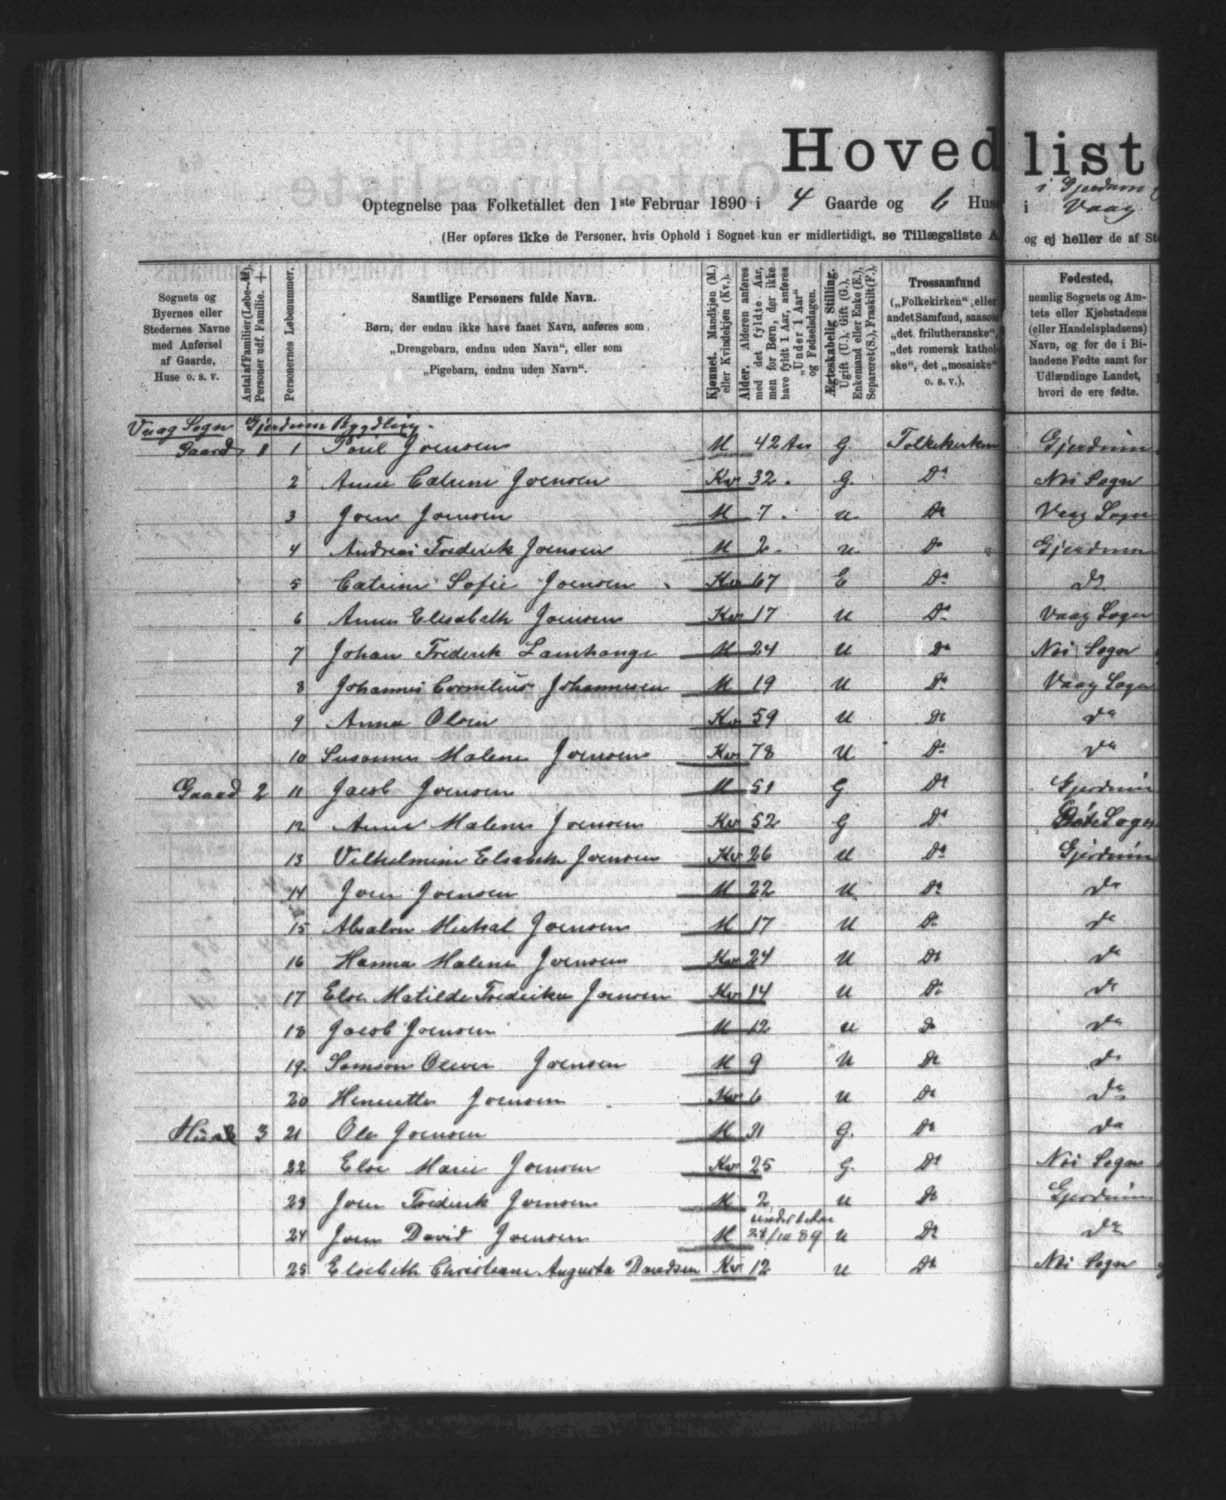 Hovedliste
Optegnelse paa Folketallet den 1ste Februar 1890 i 4 Gaarde og 6 Huse i Gjerdum i Vaag
(Her opføres ikke de Personer, hvis Ophold i Sognet kun er midlertidigt, se Tillægsliste A og ej heller de af St
Sognets og Byernes eller Stedernes Navne med Anførsel af Gaarde, Huse o. s. v.
Antal af Familier (Løbe-№). Personer udf. Familie. +
Personernes Løbenummer.
Samtlige Personers fulde Navn.
Børn, der endnu ikke have faaet Navn, anføres som „Drengebarn, endnu uden Navn“, eller som „Pigebarn, endnu uden Navn“.
Kjønnet. Mandkjøn (M.) eller Kvindekjøn (Kv.).
Alder. Alderen anføres med det fyldte Aar, men for Børn, der ikke have fyldt 1 Aar, anføres „Under 1 Aar“ og Fødselsdagen.
Ægteskabelig Stilling. Ugift (U.), Gift (G.), Enkemand eller Enke (E.), Separeret (S.), Fraskilt (F.).
Trossamfund („Folkekirken“, eller andet Samfund, saasom „det frilutheranske“, „det romersk katholske“, det „mosaiske“ o. s. v.).
Fødested, nemlig Sognets og Amtets eller Kjøbstadens (eller Handelspladsens) Navn, og for de i Bilandene Fødte samt for Udlændinge Landet, hvori de ere fødte.
Vaag Sogn Gjerdum Bygdling.
Gaard 1 1 Poul Joensen M 42 Aar G Folkekirken Gjerdum
2 Anne Catrine Joensen Kv 32. G. Do Næs Sogn
3 Joen Joensen M 7. u Do Vaag Sogn
4 Andreas Frederik Joensen M 2. u. Do Gjerdum
5 Catrine Sofie Joensen Kv 67 E Do. Do
6 Anne Elisabeth Joensen Kv 17 U Do Vaag Sogn
7 Johan Frederik Lamhauge M 24 U Do Næs Sogn
8 Johannes Cornelius Johannesen M 19 U Do Vaag Sogn
9 Anna Olsen Kv 59 U Do Do
10 Susanne Malene Joensen Kv 78 U Do Do
Gaard 2 11 Jacob Joensen M 51 G Do Gjerdum
12 Anne Malene Joensen Kv 52 G Do Sogn
13 Vilhelmine Elisabeth Joensen Kv 26 U Do Gjerdum
14 Joen Joensen M 22 U Do Do
15 Absalon Michal Joensen M 17 U Do Do
16 Hanna Malene Joensen Kv 24 U Do Do
17 Else Matilde Frederikke Joensen Kv 14 U Do Do
18 Jacob Joensen M 12 u Do Do
19. Samson Oliver Joensen M 9 U Do Do
20 Henriette Joensen Kv 6 u Do Do
Huus 3 21 Ole Joensen M 31 G. Do Do
22 Else Marie Joensen Kv 25 G. Do Næs Sogn
23 Joen Frederik Joensen M 2 u Do Gjerdum
24 Joen David Joensen M under et Aar 28/10 89 u Do Do
25 Elsebeth Christiane Augusta Davidsen Kv 12 u Do Næs Sogn